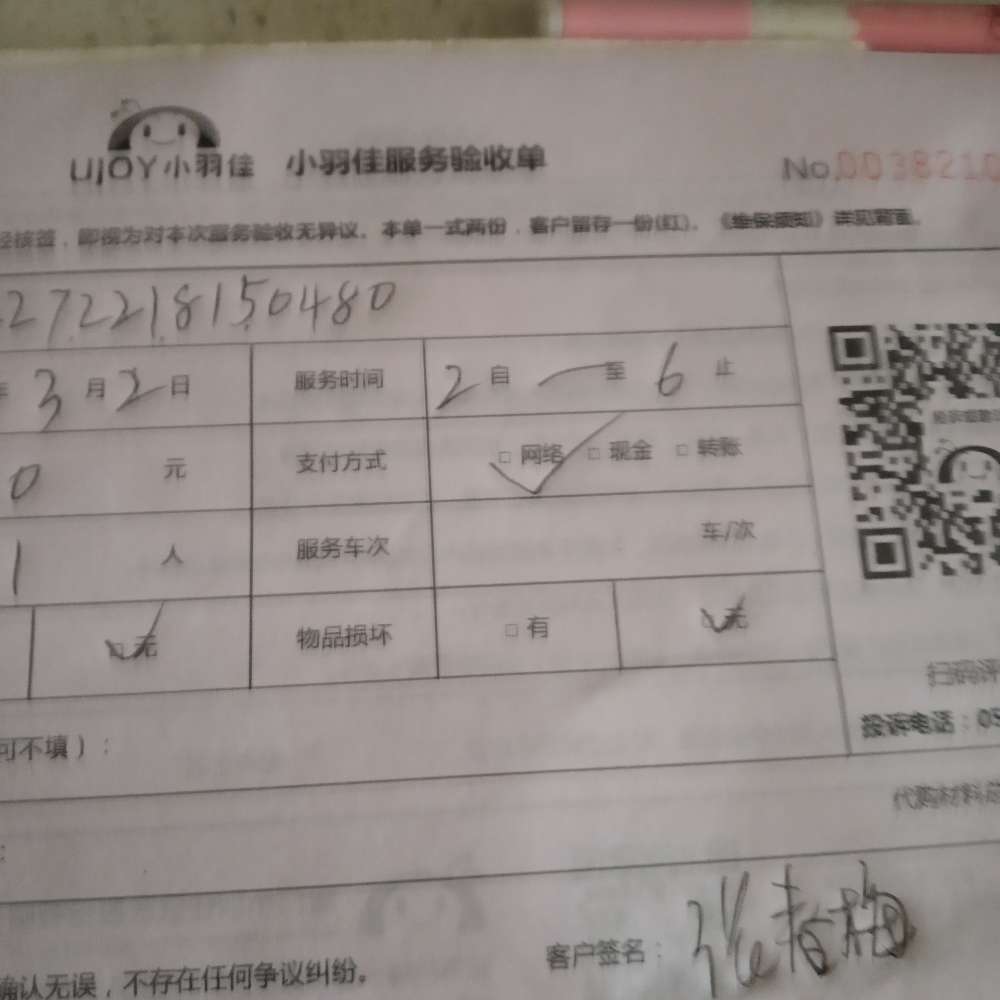 UJOY小羽佳 小羽佳服务验收单 No.0038210
经核签，即视为对本次服务验收无异议。本单一式两份，客户留存一份(红)。《维保须知》详见背面。
272218150480
年 3 月 2 日 服务时间 2 自 至 6 止
0 元 支付方式 □ 网络 □ 现金 □ 转账
1 人 服务车次 车/次
□ 无 物品损坏 □ 有 □ 无
扫码评
投诉电话：05
可不填）：
代购材料
：
确认无误，不存在任何争议纠纷。 客户签名：张春梅